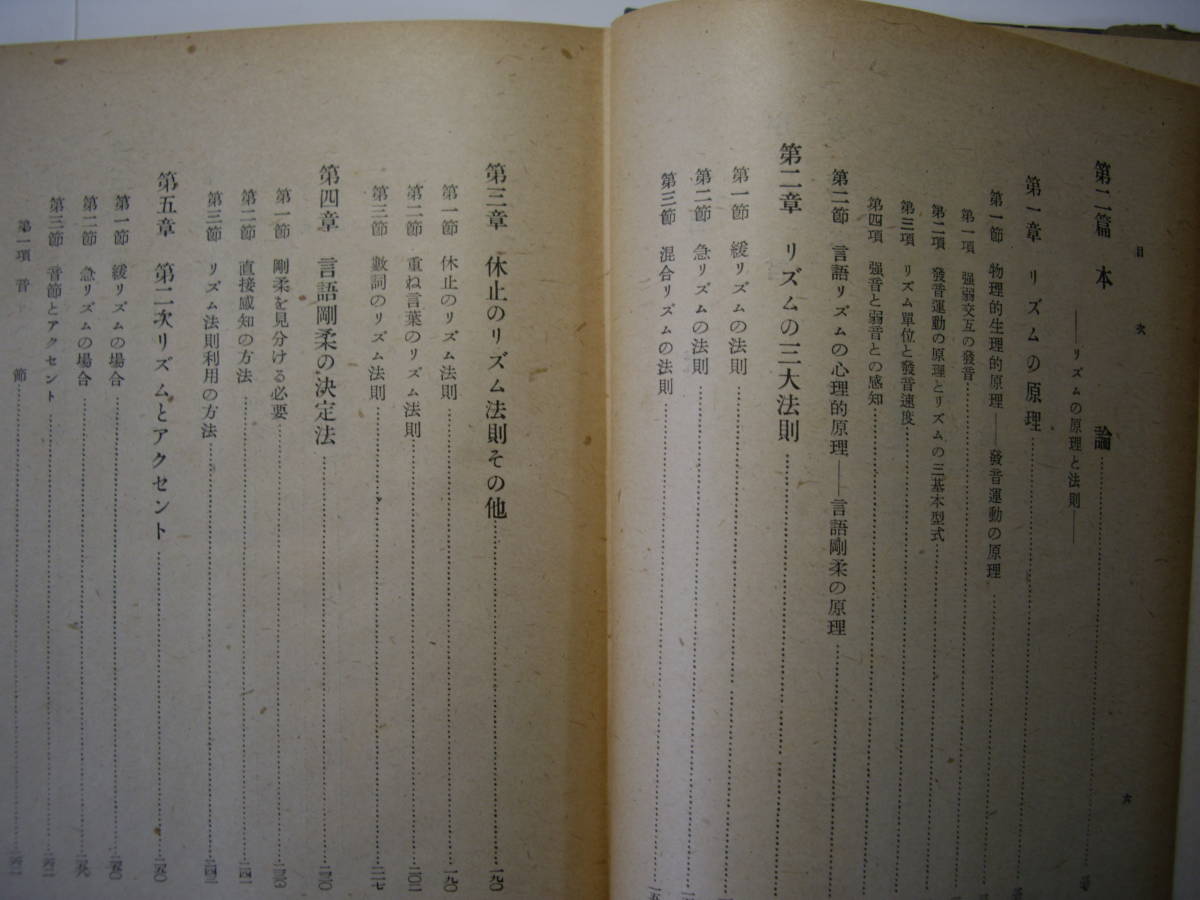 目次
第二篇 本論
――リズムの原理と法則――
第一章 リズムの原理
第一節 物理的生理的原理――發音運動の原理
第一項 强弱交互の發音
第二項 發音運動の原理とリズムの三基本型式
第三項 リズム單位と發音速度
第四項 强音と弱音との感知
第二節 言語リズムの心理的原理――言語剛柔の原理
第二章 リズムの三大法則
第一節 緩リズムの法則
第二節 急リズムの法則
第三節 混合リズムの法則
六
第三章 休止のリズム法則その他 一九〇
第一節 休止のリズム法則 一九〇
第二節 重ね言葉のリズム法則 二〇二
第三節 數詞のリズム法則 二一七
第四章 言語剛柔の決定法
第一節 剛柔を見分ける必要
第二節 直接感知の方法 二四一
第三節 リズム法則利用の方法
第五章 第二次リズムとアクセント 二五〇
第一節 緩リズムの場合 二五〇
第二節 急リズムの場合 二五九
第三節 音節とアクセント
第一項 音節